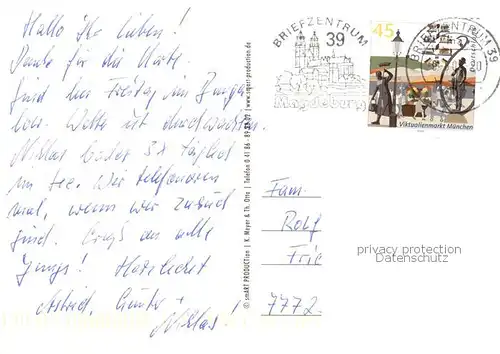 Hallo Ihr Lieben!
Danke für die Karte.
Sind der Freitag im
Wetter ist durchwachsen.
Niklas badet 3x täglich
im See. Wir telefonieren
mal, wenn wir zurück
sind. Gruß an alle
Jungs! Herzlichst
Astrid, Günter +
Niklas!
© smART PRODUCTION | K. Meyer & Th. Otto | Telefon 0 41 86 - 89 | www.smart-production.de
BRIEFZENTRUM
39
Magdeburg
45
Viktualienmarkt München
BRIEFZENTRUM 39
Fam.
Rolf
Frie
7772
privacy protection
Datenschutz